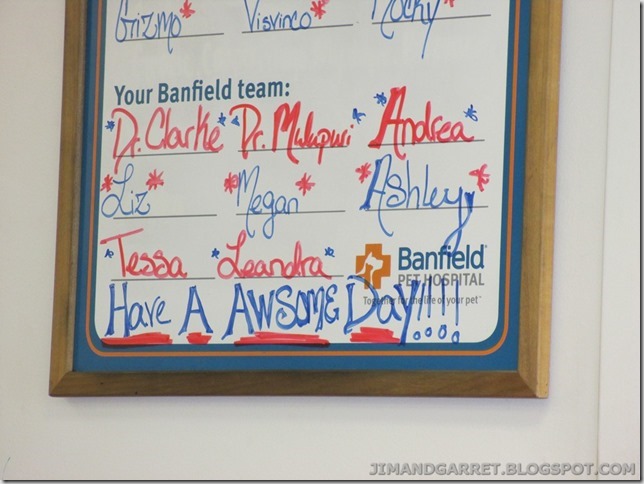 Gizmo* Visvinco* Rocky*
Your Banfield team:
*Dr. Clarke* *Dr. Malapuri* *Andrea*
*Liz* *Megan* *Ashley*
*Tessa* *Leandra*
Banfield
PET HOSPITAL
Together for the life of your pet™
Have A AWSOME Day!!!!
JIMANDGARRET.BLOGSPOT.COM